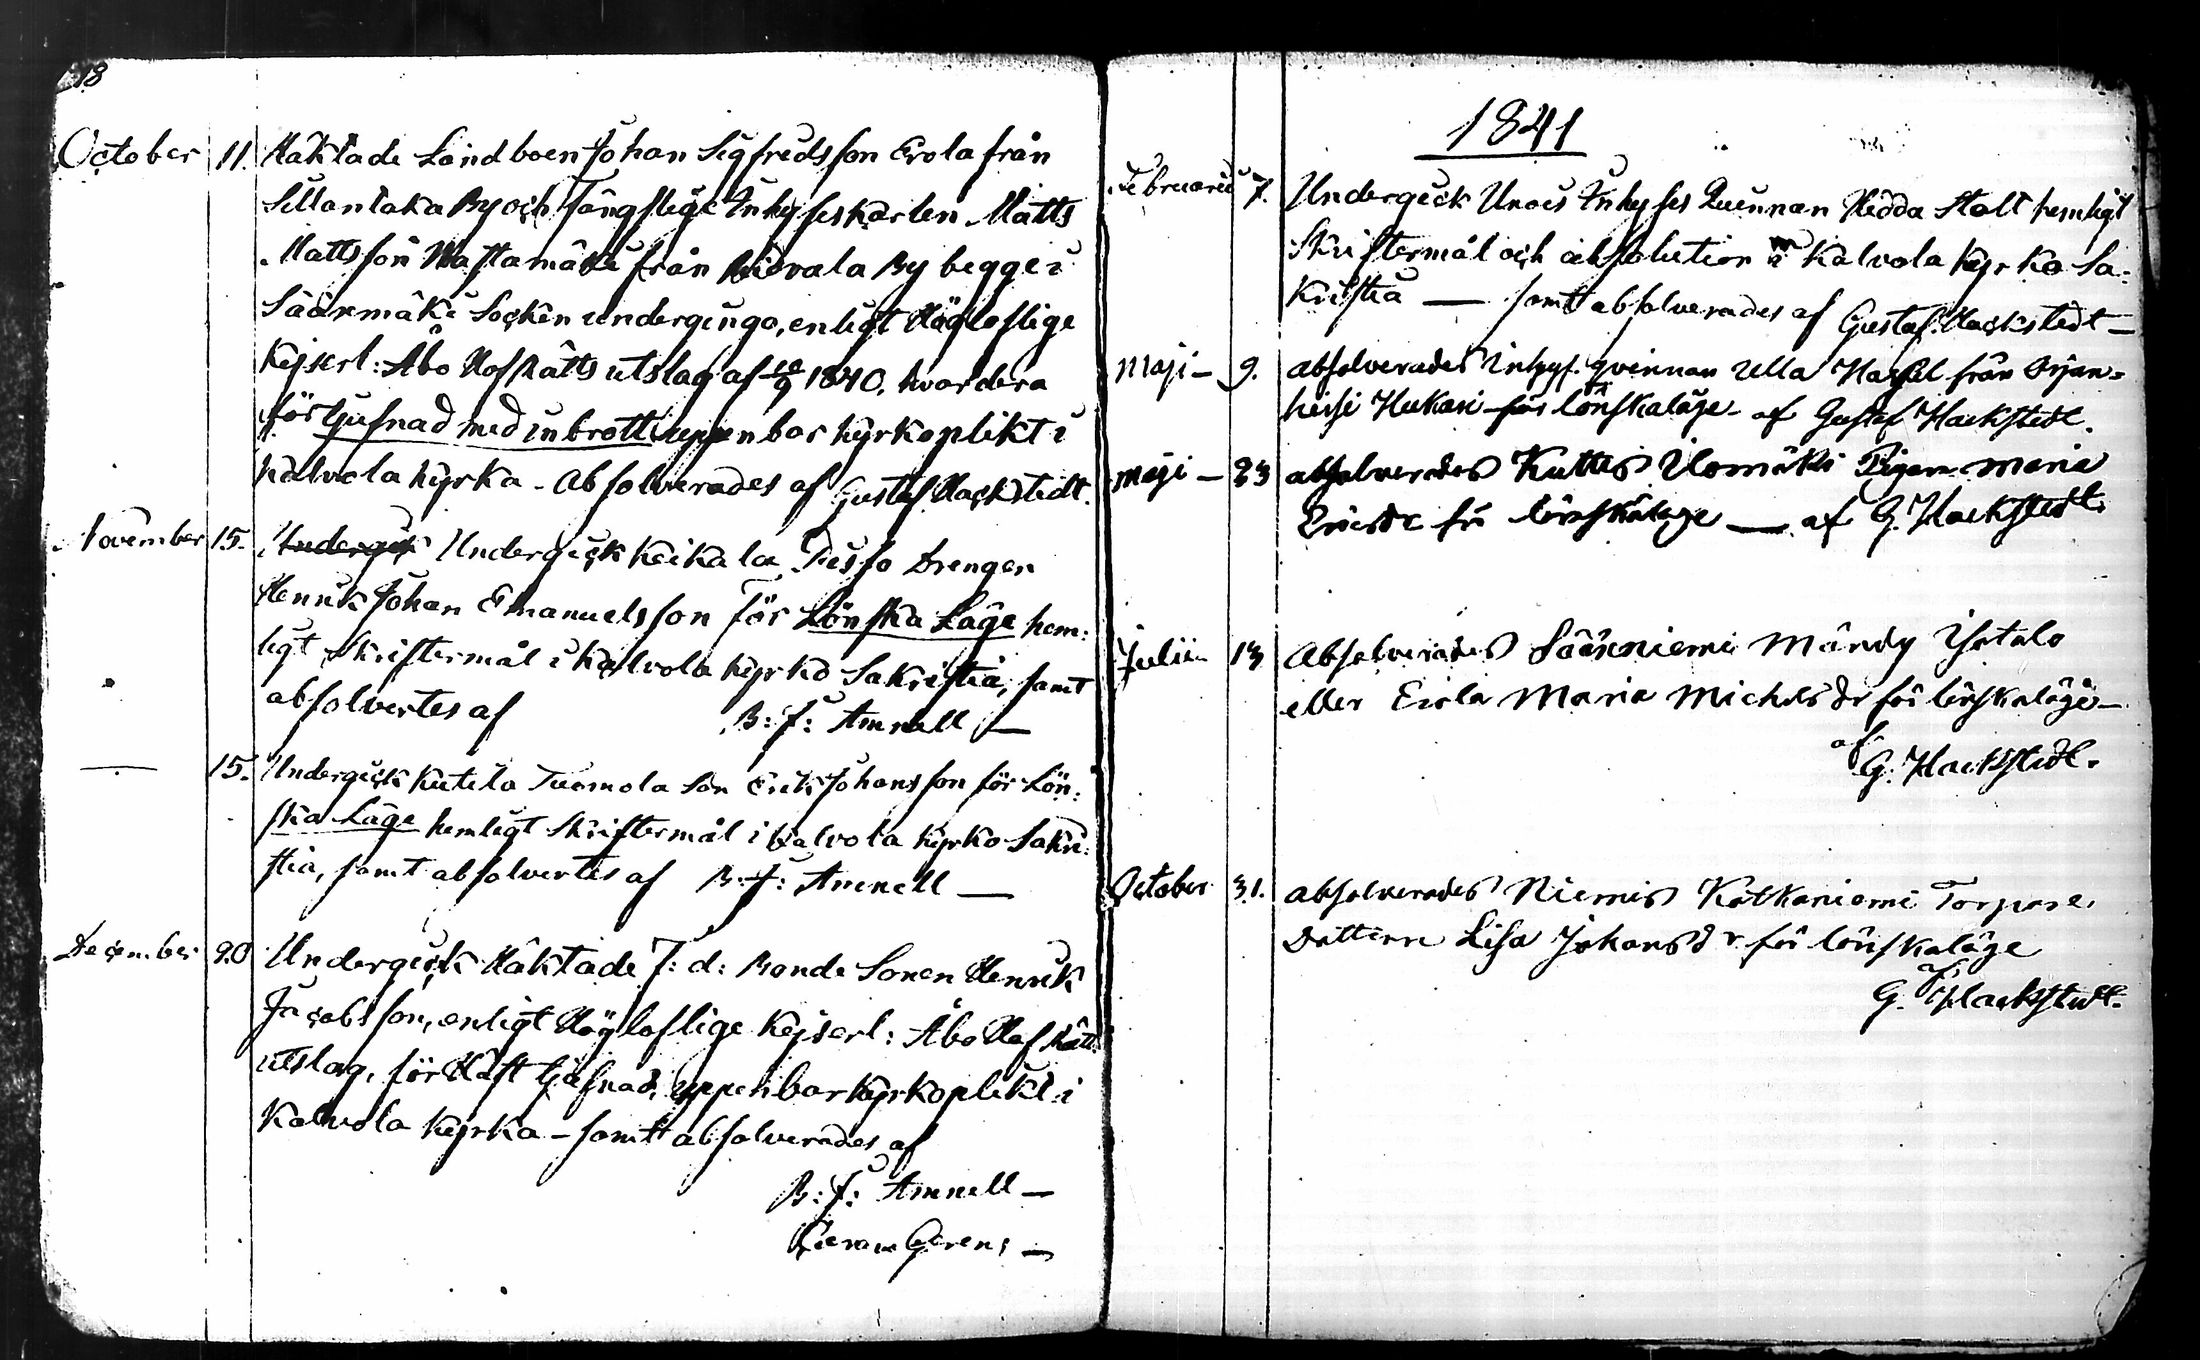 18
October 11. Häktade Landboen Johan Sigfredsson Erola från
Sillantaka By och Fängslige Inhyseskarlen Matts
Mattsson Wattamäki från Ridvala By begge i
Sääxmäki Socken undergingo, enligt Högloflige
Kejserl: Åbo HofRätts utslag af 1840, hvardera
för tjufnad med inbrott uppenbar kyrkoplikt i
Kalvola kyrka - Absolverades af Gustaf Hackstedt.
November 15. Undergick Undergick Keikala Drengen
Henrik Johan Emanuelsson för Lönska Läge hem:
ligt Skriftermål i Kalvola kyrko Sakristia, samt
absolvertes af B: J: Amnell —
— 15. Undergick Kutila Tuomola Son Erik Johansson för Lön:
ska Läge hemligt Skriftermål i Kalvola kyrko Sakri:
stia, samt absolvertes af B: J: Amnell —
December 20 Undergick Häktade F: d: Bonde Sonen Henrik
Jacobsson, enligt Högloflige Kejserl: Åbo HofRätts
utslag, för tjufnad, uppenbar kyrkoplikt i
Kalvola kyrka - samt absolverades af
B: J: Amnell —
1841
Februarii 7. Undergick Inhyses Quinnan Hedda Stolt hemligt
Skriftermål och absolution i Kalvola kyrko Sa:
kristia — samt absolverades af Gustaf Hackstedt —
Maji — 9. absolverades Inhys. qvinnan Ulla från Orjan=
heisi för lönskaläge - af Gustaf Hackstedt.
Maji — 23 absolverades Kuttis Uomäki Pigan Maria
Ericsdr för lönskaläge — af G. Hackstedt.
Julii 13 Absolverades Sääxniemi Mändy Ysotalo
eller Erola Maria Michelsdr för lönskaläge —
af
G. Hackstedt.
October 31. absolverades Niemis Kotkaniemi Torpare
Dottern Lisa Johansdr för lönskaläge
af
G. Hackstedt.